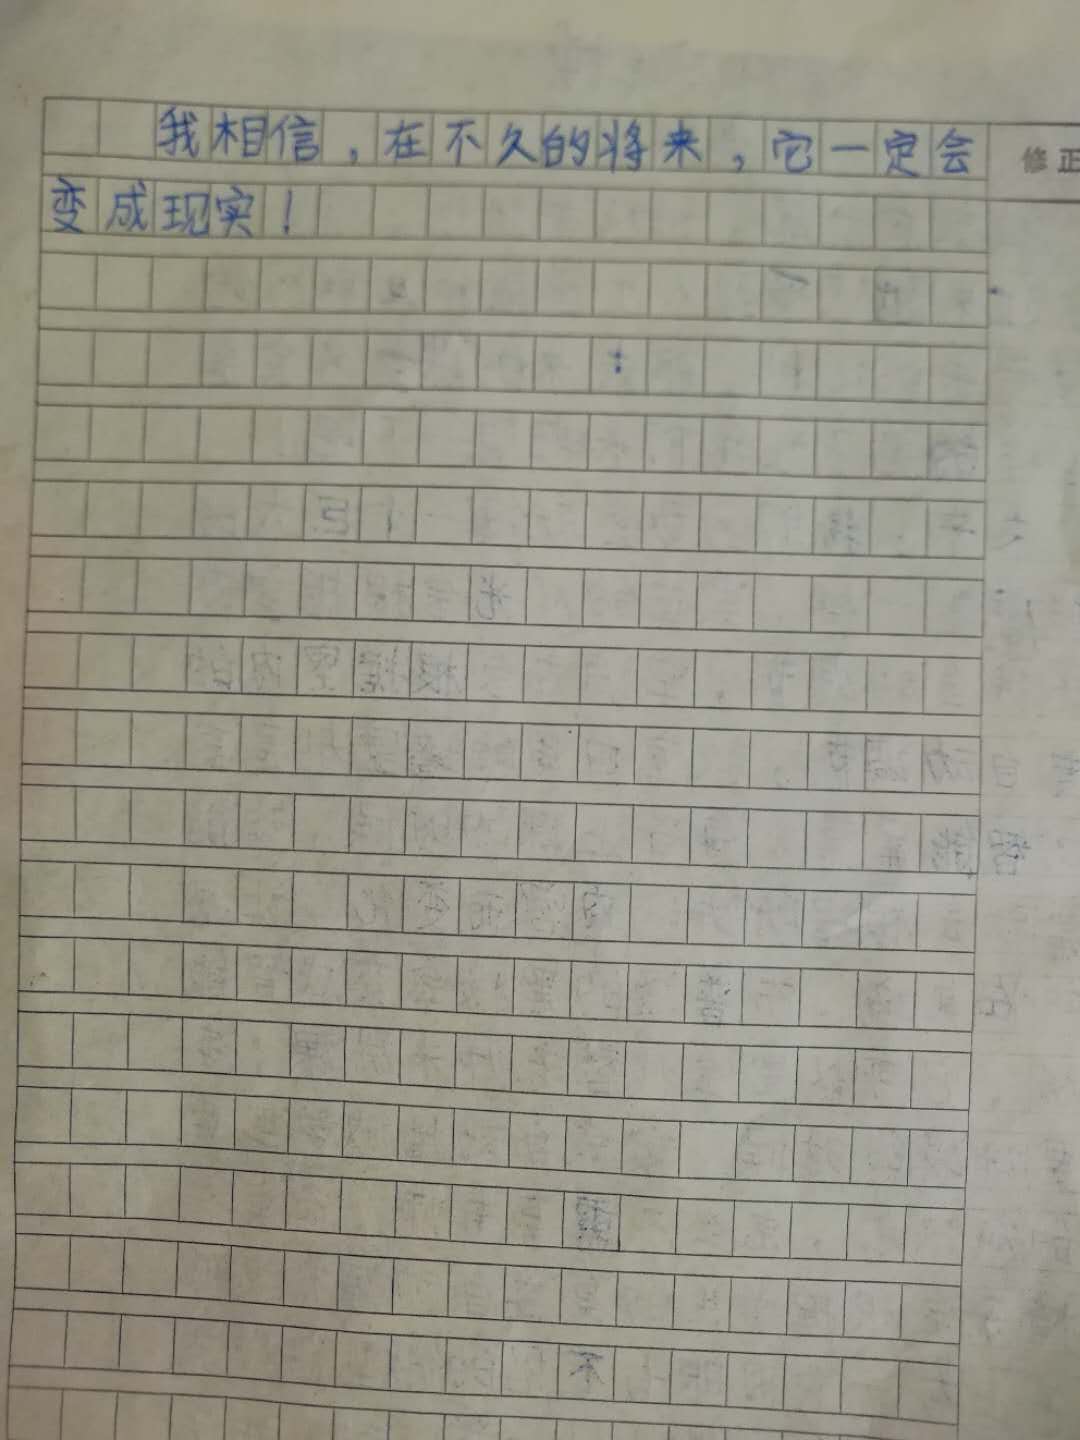 我相信，在不久的将来，它一定会
修正
变成现实！